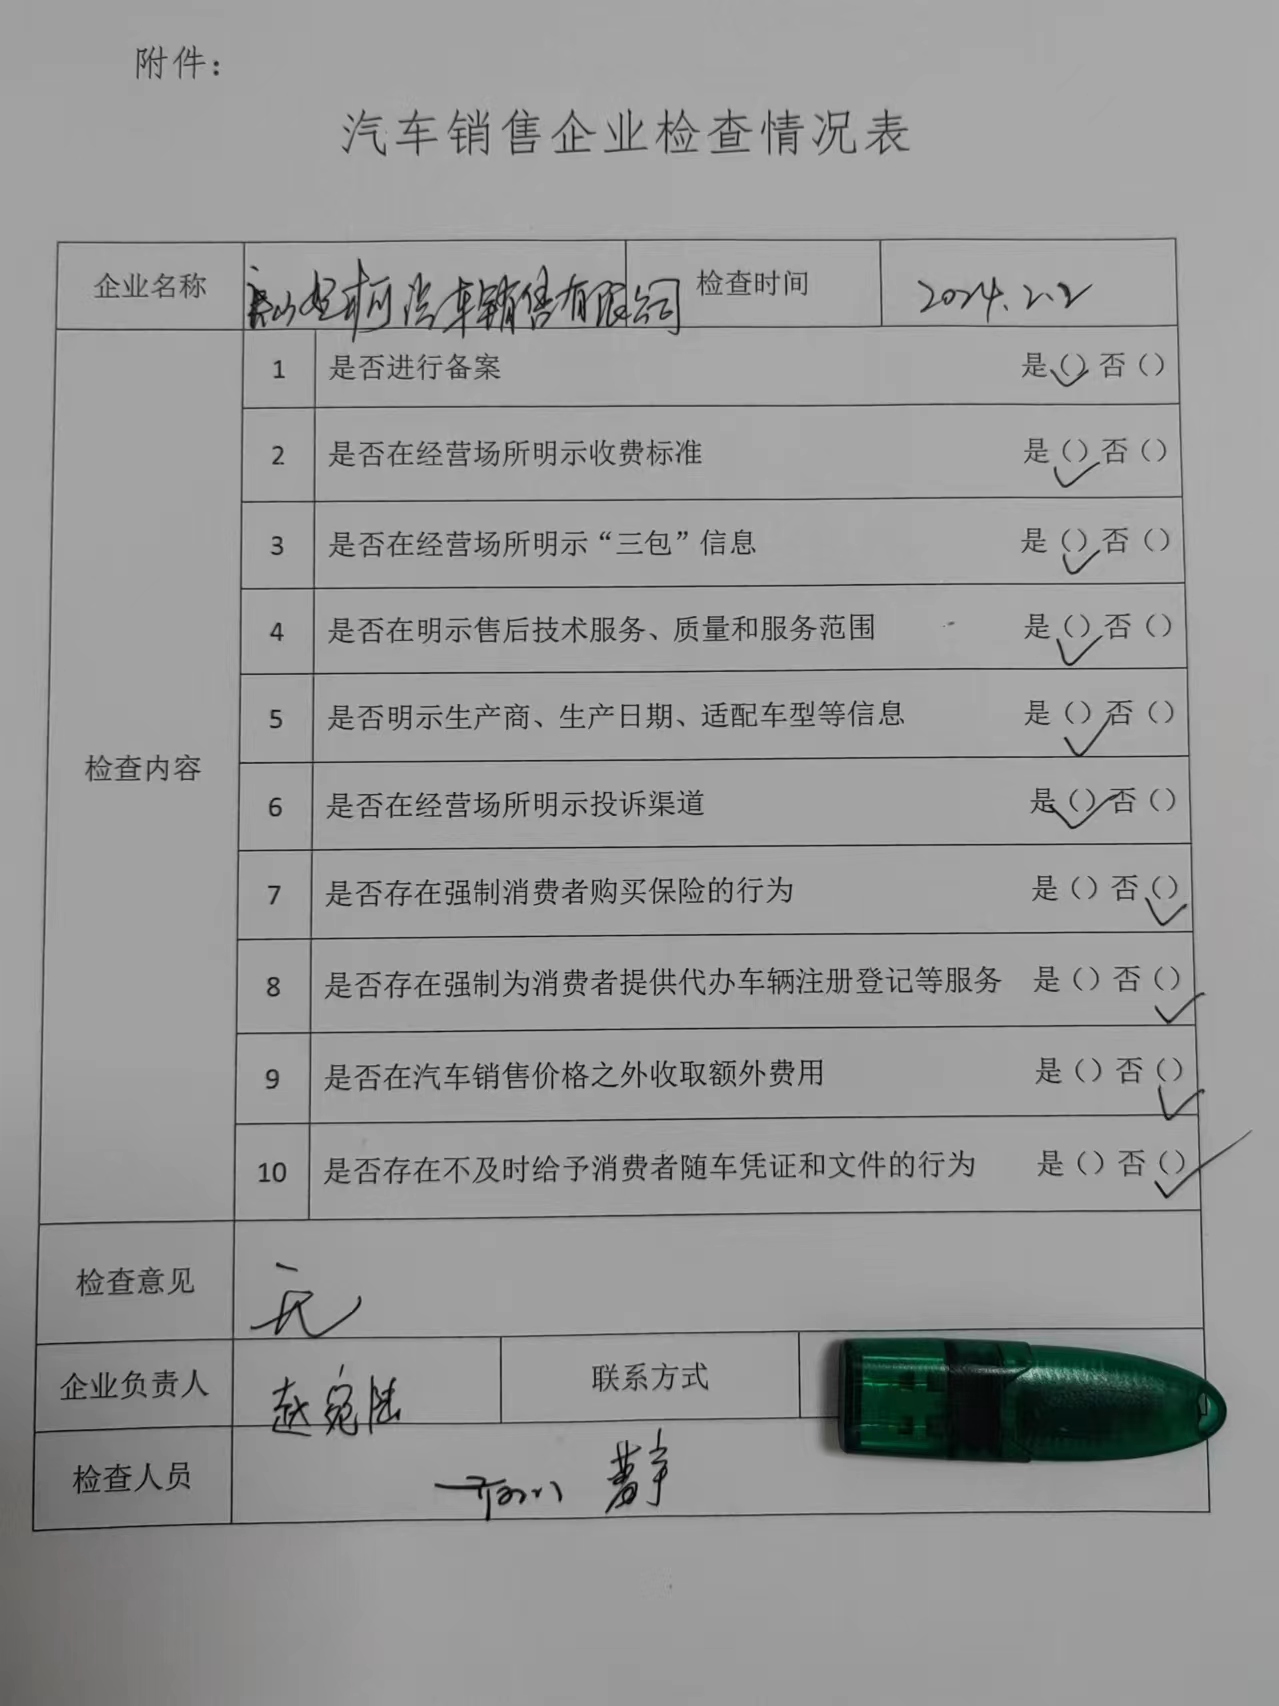 附件：
汽车销售企业检查情况表
企业名称 汽车销售有限公司 检查时间 2024.2.2
检查内容
1 是否进行备案 是(✓)否()
2 是否在经营场所明示收费标准 是(✓)否()
3 是否在经营场所明示“三包”信息 是(✓)否()
4 是否在明示售后技术服务、质量和服务范围 是(✓)否()
5 是否明示生产商、生产日期、适配车型等信息 是(✓)否()
6 是否在经营场所明示投诉渠道 是(✓)否()
7 是否存在强制消费者购买保险的行为 是()否(✓)
8 是否存在强制为消费者提供代办车辆注册登记等服务 是()否(✓)
9 是否在汽车销售价格之外收取额外费用 是()否(✓)
10 是否存在不及时给予消费者随车凭证和文件的行为 是()否(✓)
检查意见 无
企业负责人 联系方式
检查人员